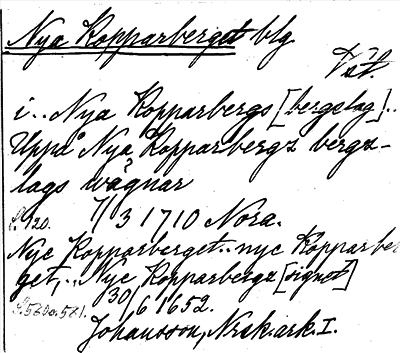 Nya Kopparberget blg
Vstm.
i.. Nya Kopparbergs [bergslag]..
Uppå Nya Kopparbergz bergz-
lags wägnar
S. 120. 7/3 1710 Nora.
Nye Kopparberget.. nye Kopparber
get,.. Nye Kopparbergz [signet]
S. 580 o. 581. 30/6 1652.
Johansson, Norsk. ark. I.